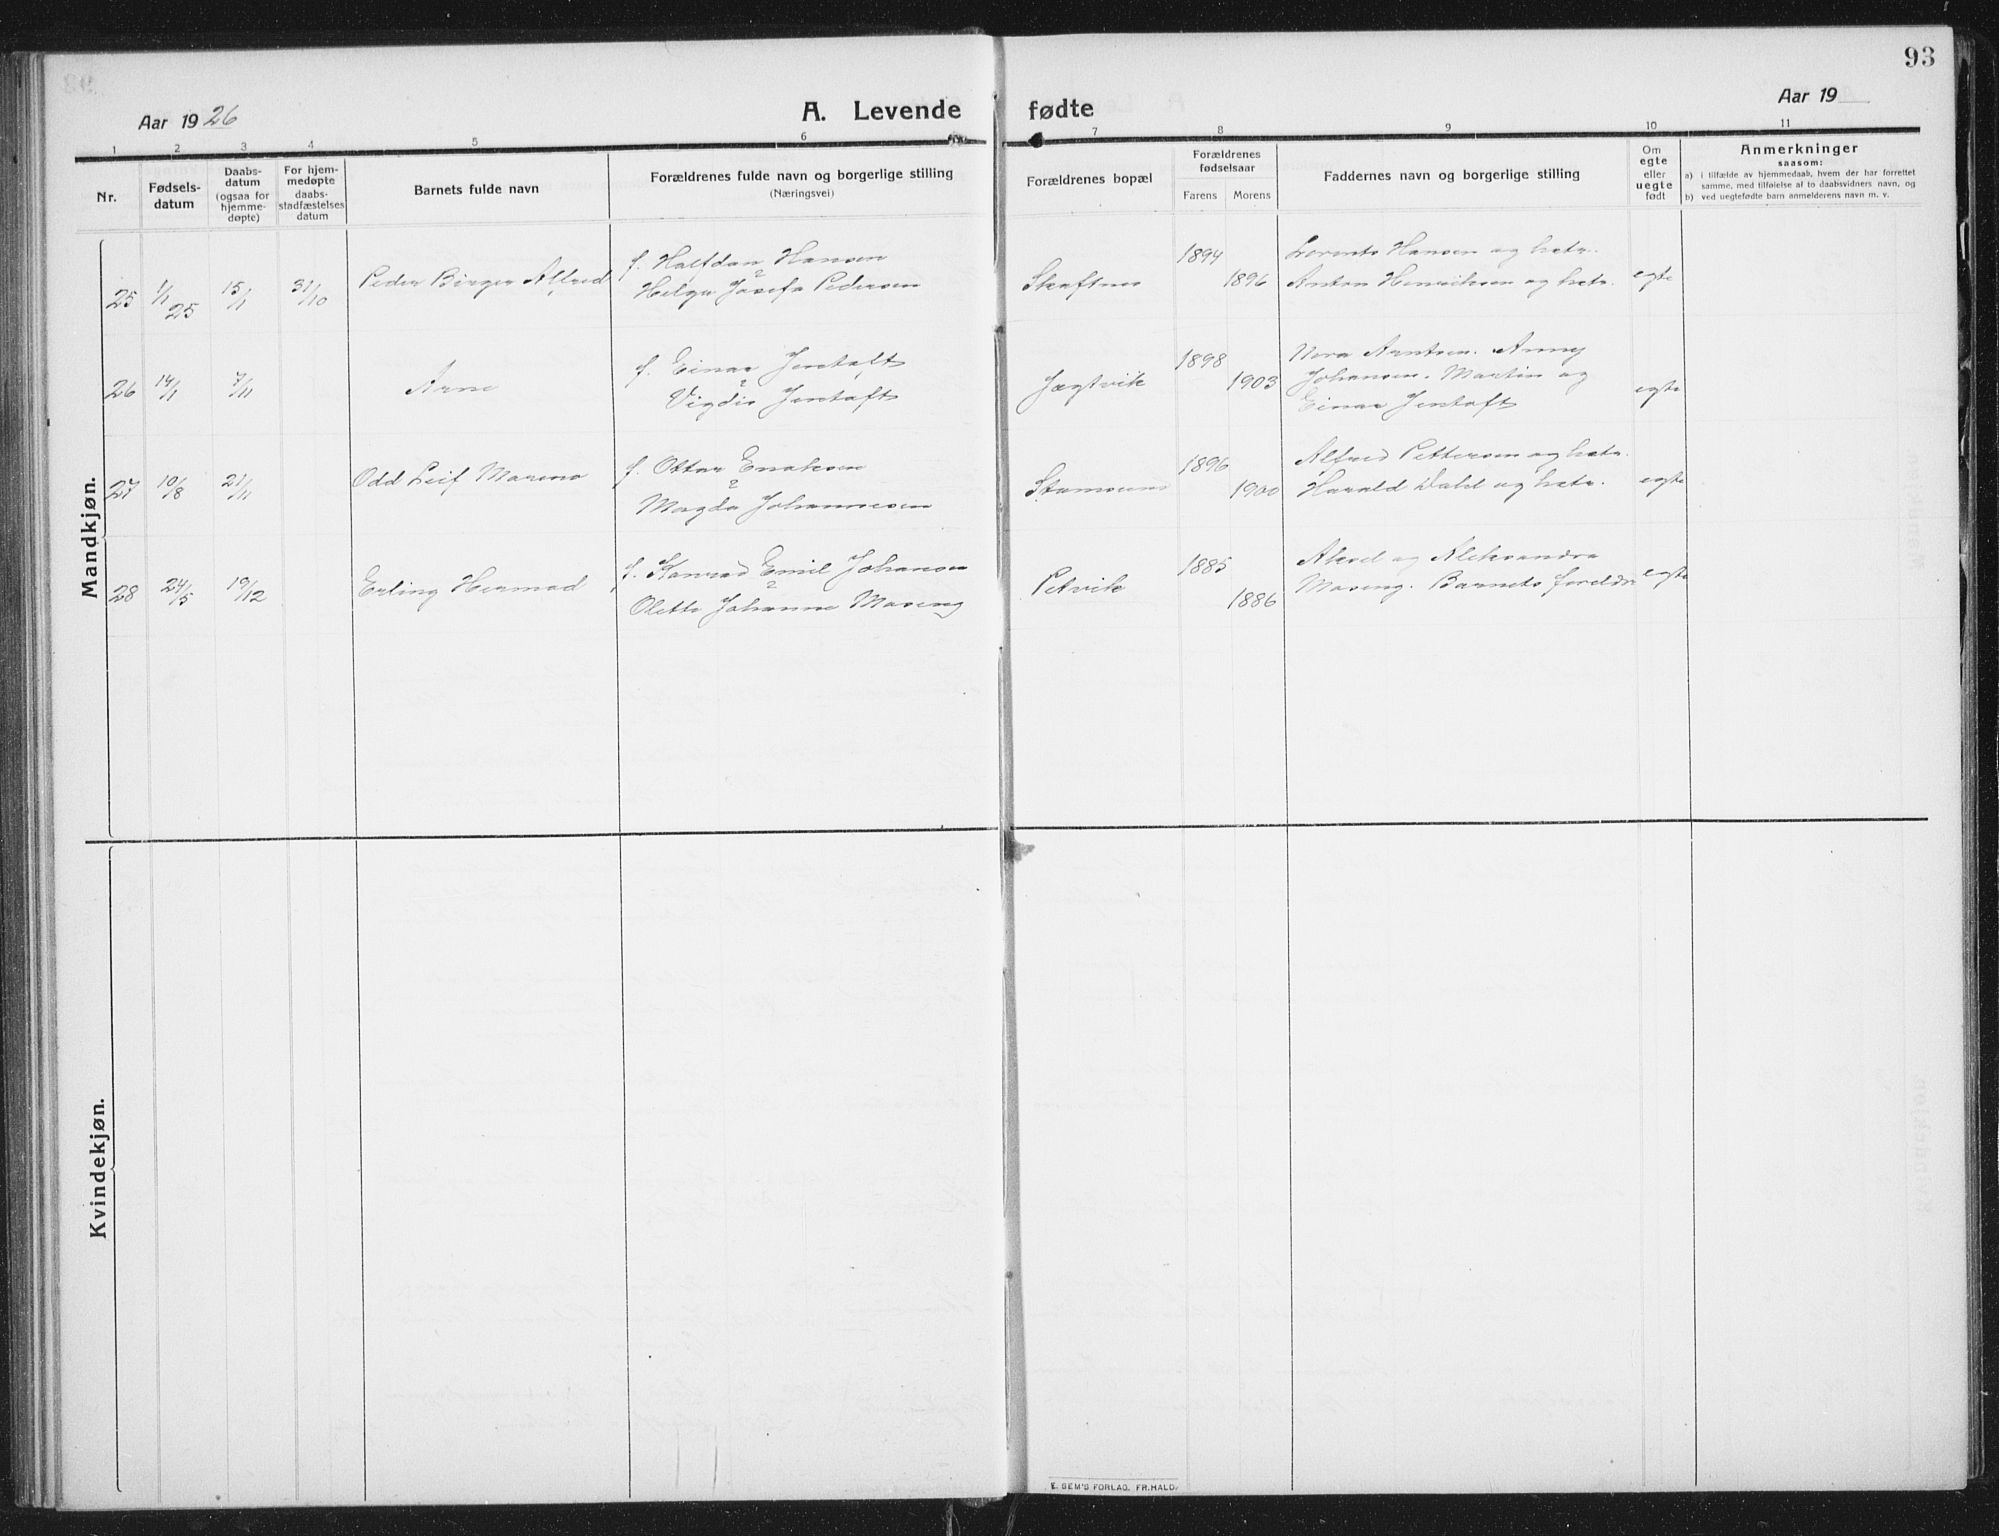 93
Aar 1926
A. Levende fødte
Aar 19
1 2 3 4 5 6 7 8 9 10 11
Nr.
Fødsels-
datum
Daabs-
datum
(ogsaa for
hjemme-
døpte)
For hjem-
medøpte
daabs-
stadfæstelses
datum
Barnets fulde navn
Forældrenes fulde navn og borgerlige stilling
(Næringsvei)
Forældrenes bopæl
Forældrenes
fødselsaar
Farens Morens
Faddernes navn og borgerlige stilling
Om
egte
eller
uegte
født
Anmerkninger
saasom:
a) i tilfælde av hjemmedaab, hvem der har forrettet
samme, med tilføielse af to daabsvidners navn, og
b) ved uegtefødte barn anmelderens navn m. v.
Mandkjøn.
25 1/1 25 15/1 31/10 Peder Birger Alfred
f. Halfdan Hansen
Helga Josefa Pedersen
Skaftnes 1894 1896
Lorents Hansen og hstr.
Anton Henriksen og hstr.
egte
26 14/1 7/11 Arne
f. Einar Jentoft
Vigdis Jentoft
Jægtvik 1898 1903
Nora Arntsen. Anny
Johansen. Martin og
Einar Jentoft
egte
27 10/8 21/11 Odd Leif Mareno
f. Ottar Enoksen
Magda Johannesen
Stamsund 1896 1900
Alfred Pettersen og hstr.
Harald Dahl og hstr.
egte
28 24/5 19/12 Erling Hermod
f. Konrad Emil Johansen
Olette Johanne Maseng
Petvik 1885 1886
Aksel og Aleksandra
Maseng. Barnets foreldre
egte
Kvindekjøn.
E. SEM'S FORLAG, FR.HALD.